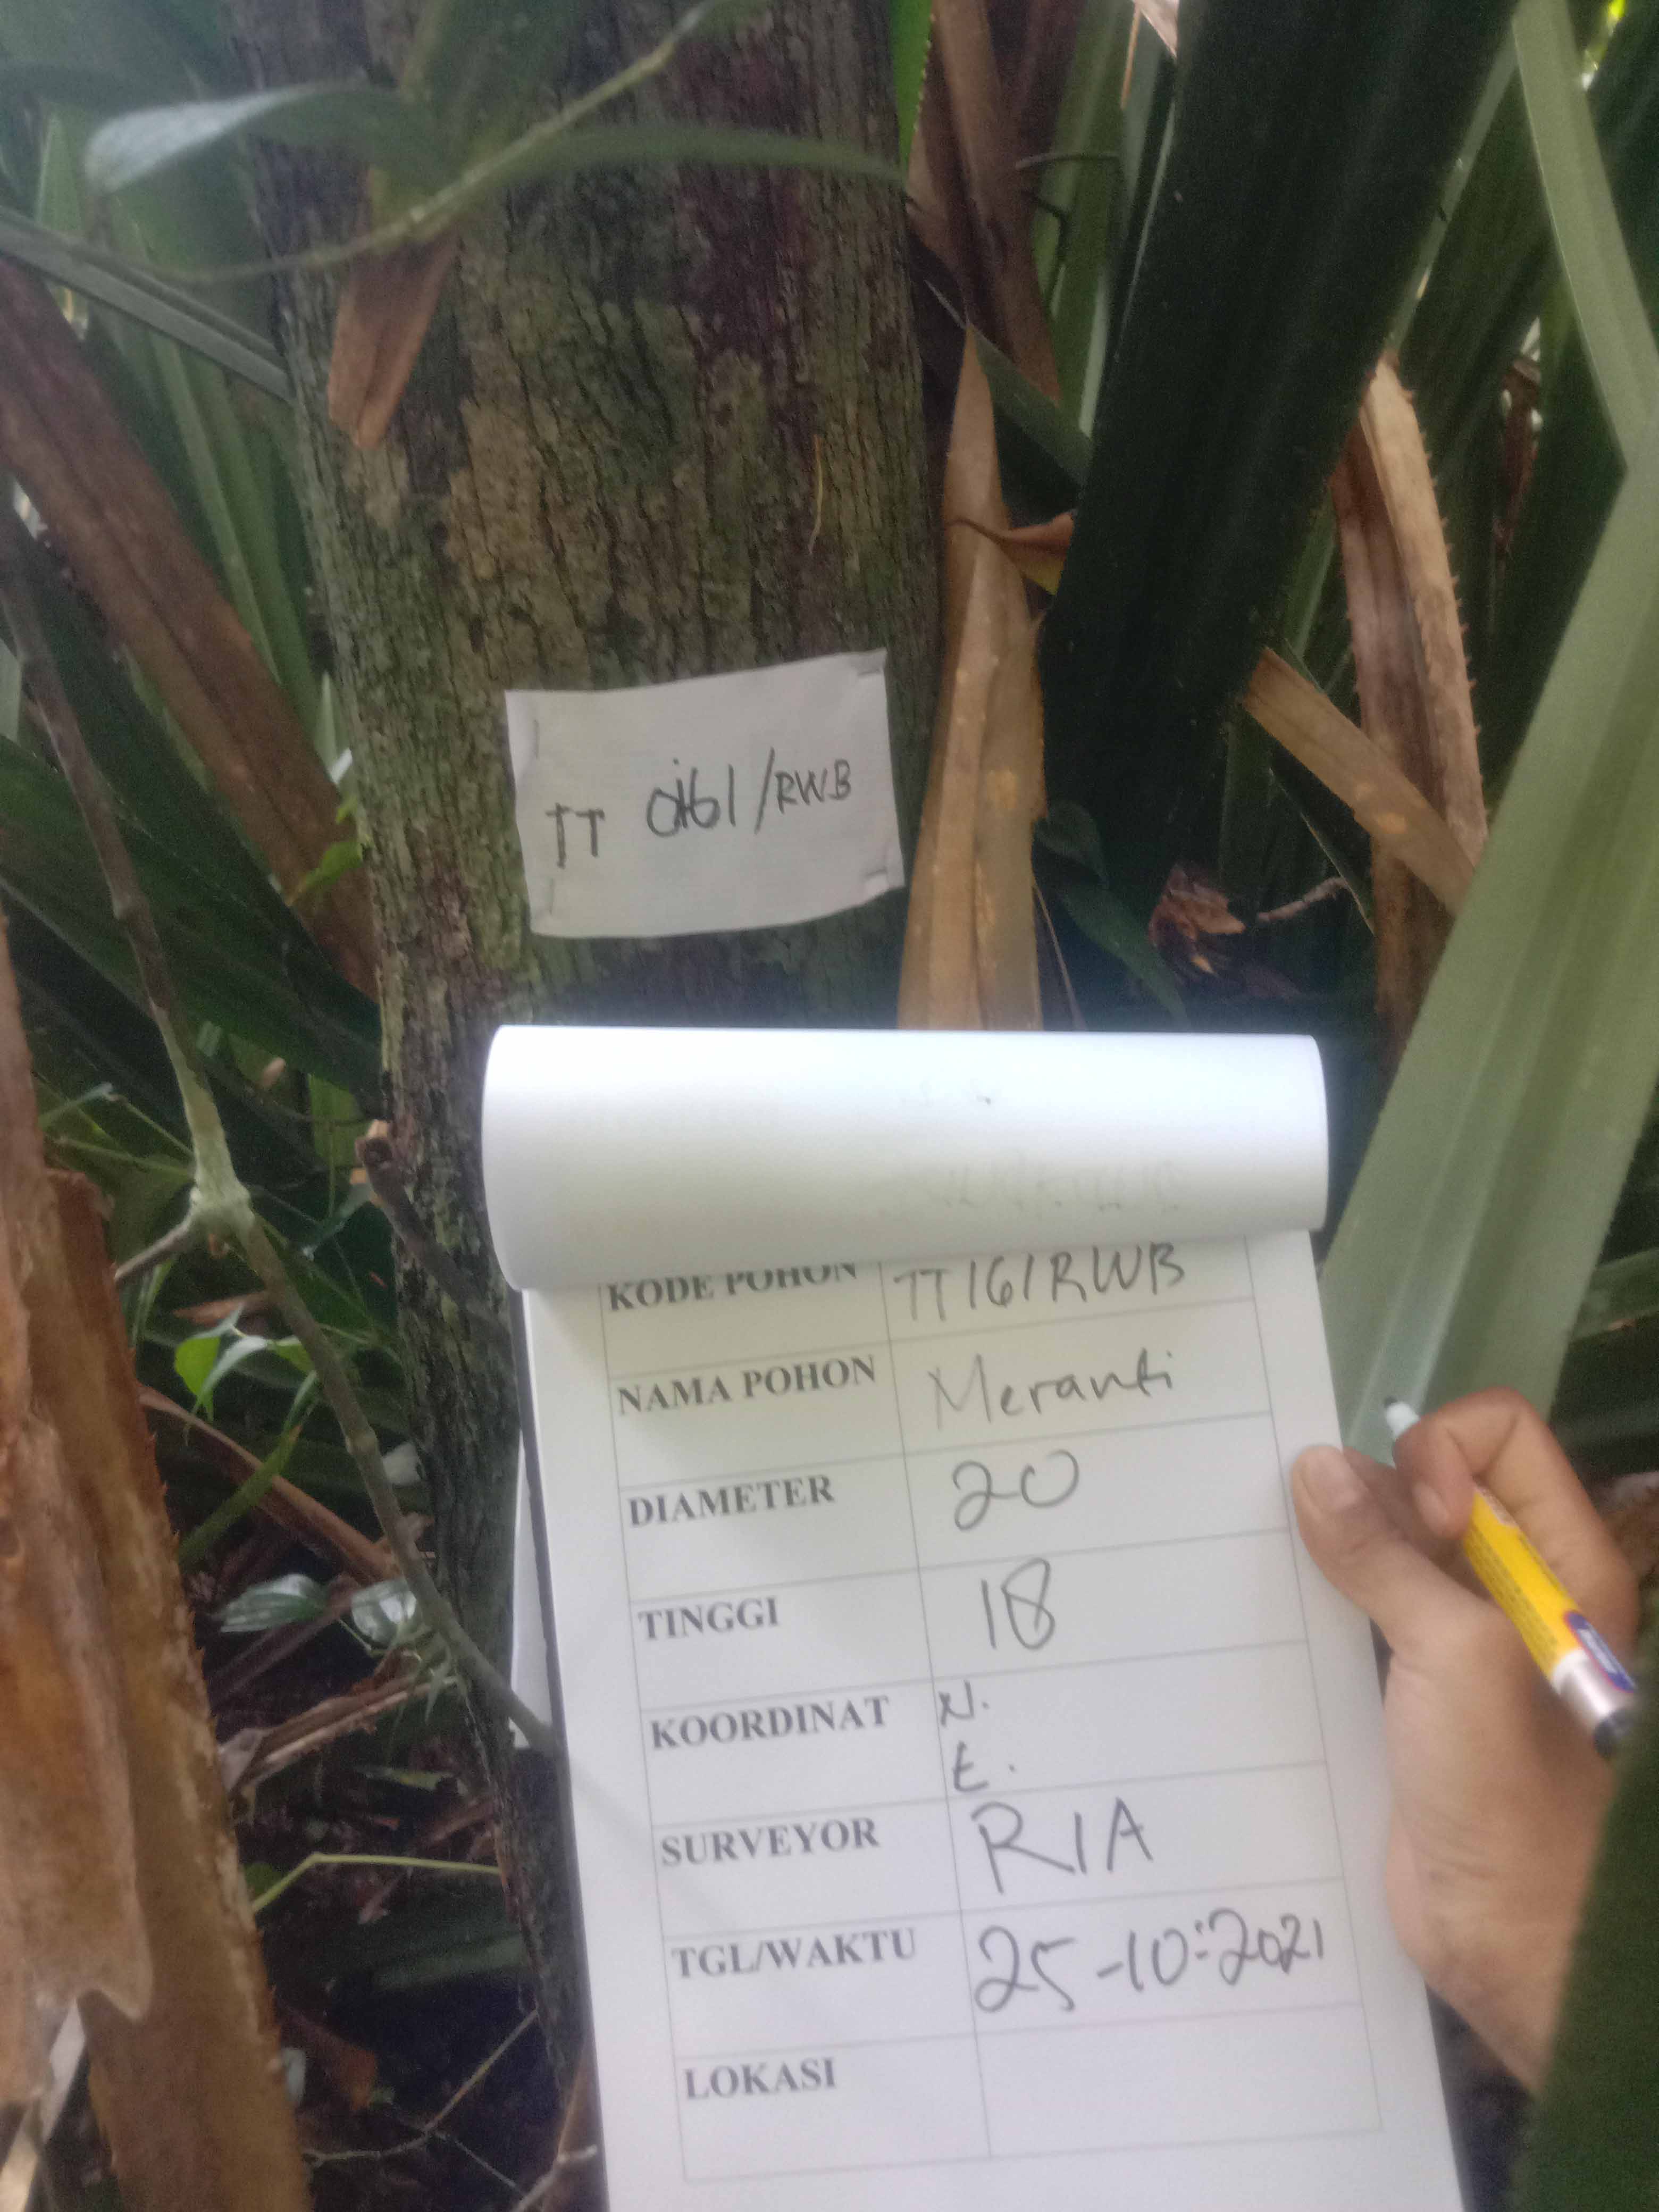 TT 0161/RWB
KODE POHON TT161RWB
NAMA POHON Meranti
DIAMETER 20
TINGGI 18
KOORDINAT N.
E.
SURVEYOR RIA
TGL/WAKTU 25-10-2021
LOKASI